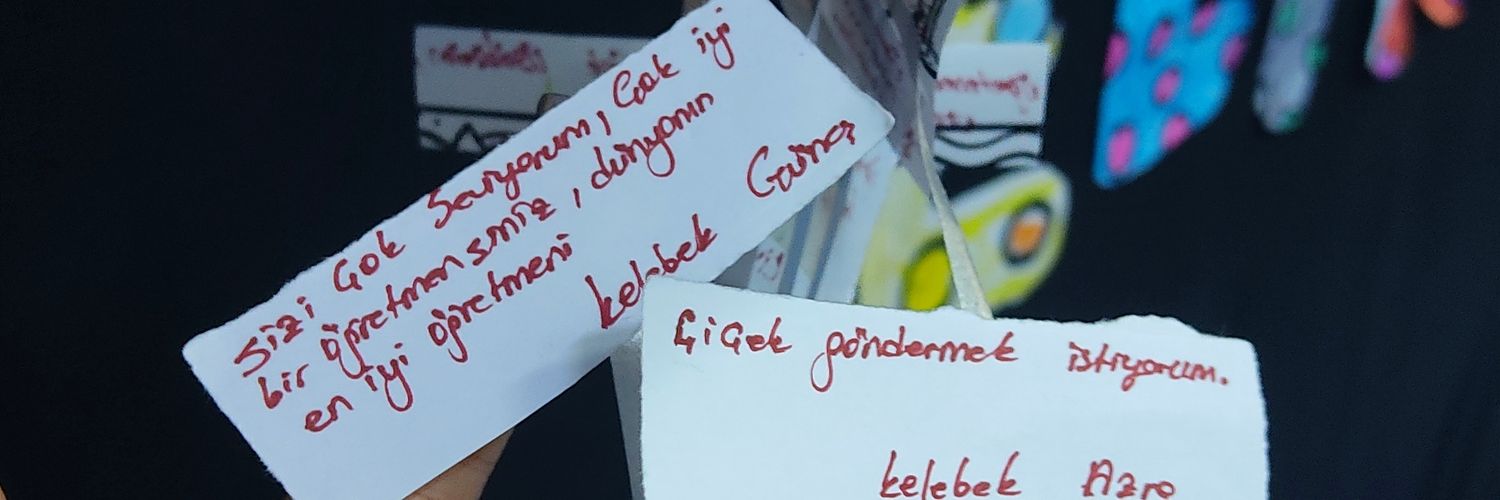 Sizi çok seviyorum, çok iyi
bir öğretmensiniz, dünyanın
en iyi öğretmeni
kelebek Güneş
Çiçek göndermek istiyorum.
kelebek Azra